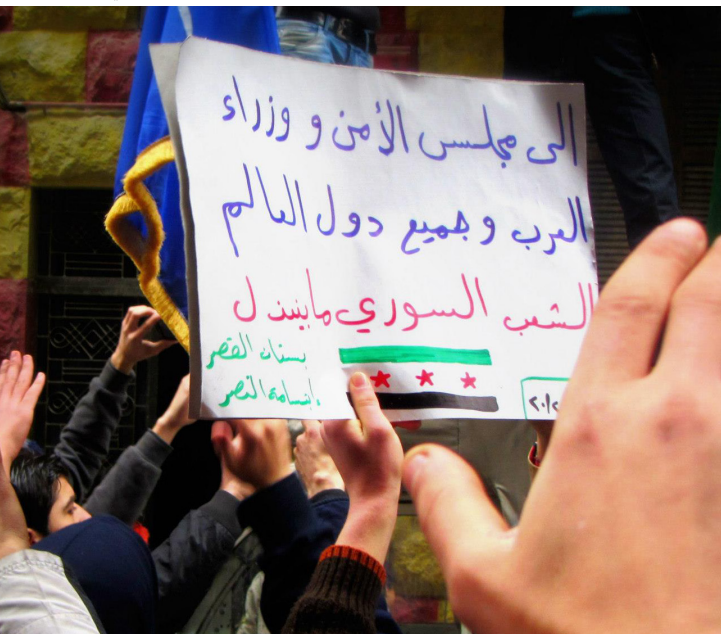 الى مجلس الأمن و وزراء
العرب وجميع دول العالم
الشعب السوري مابينذل
بستان القصر
ابتسامة النصر